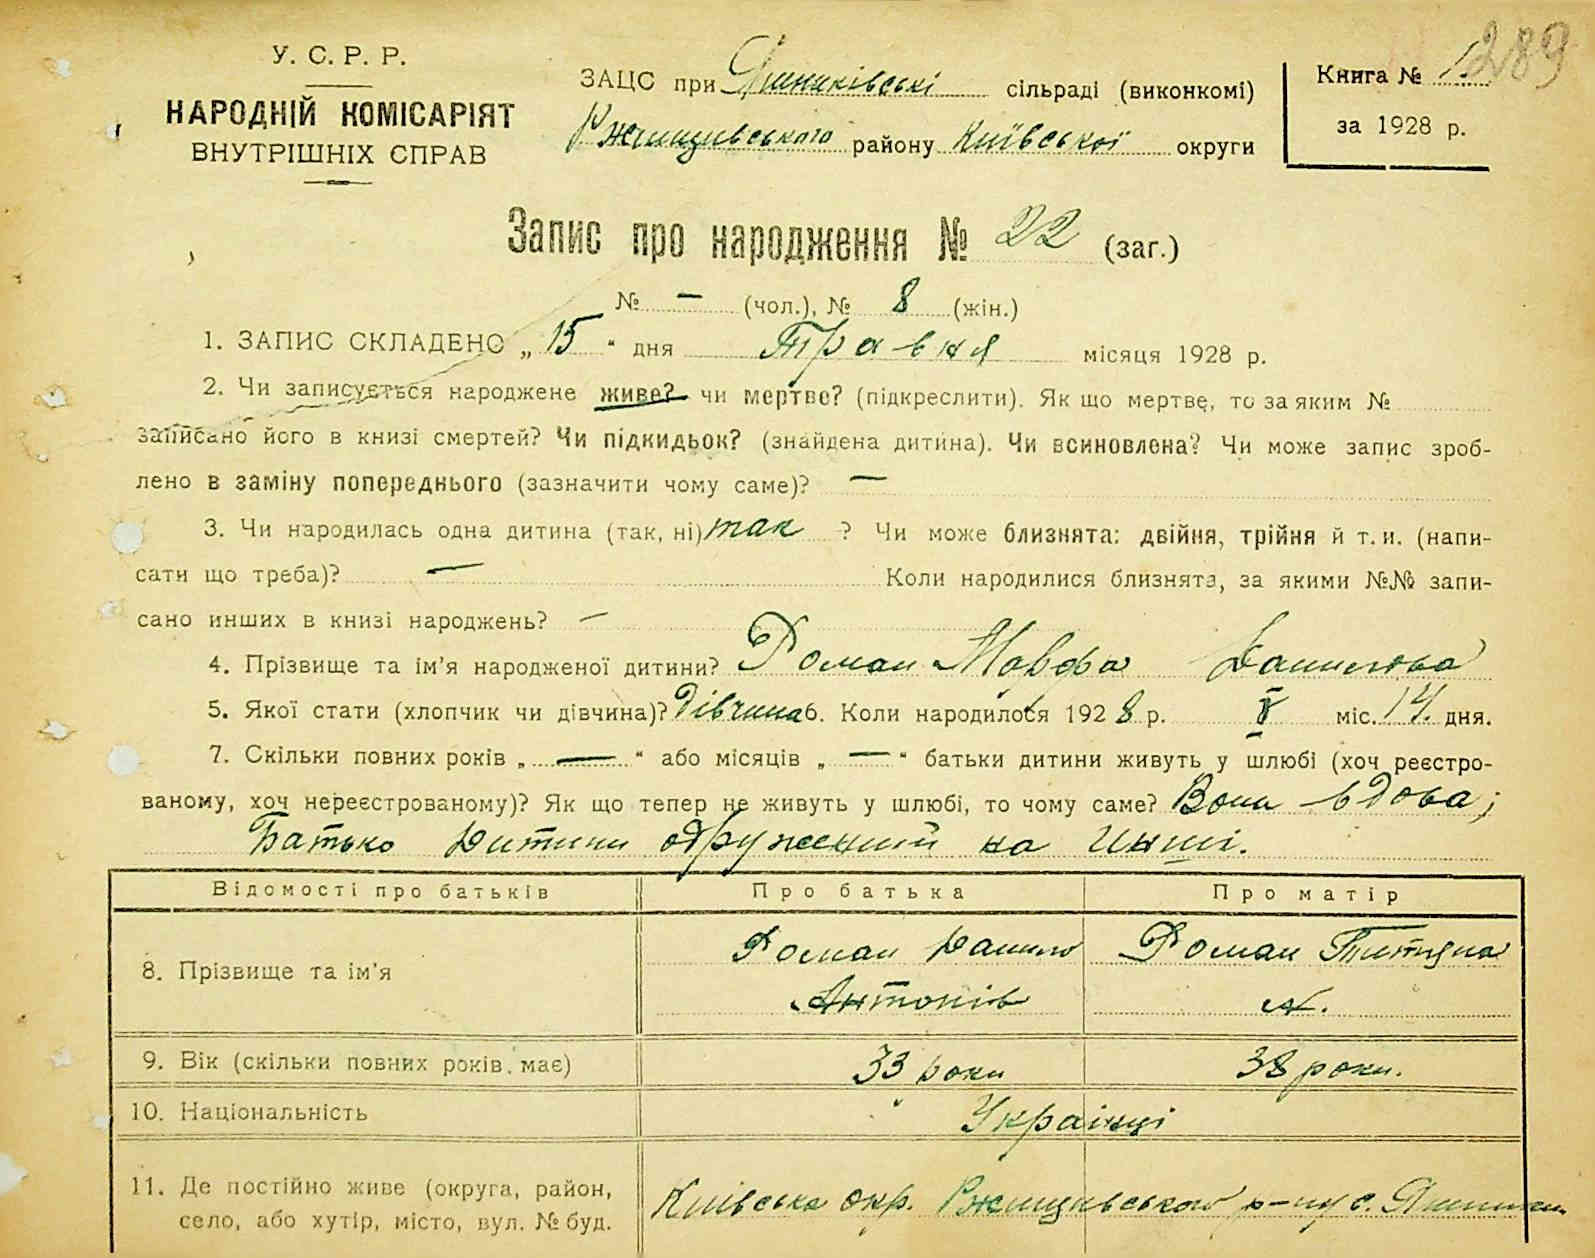 У. С. Р. Р.
НАРОДНІЙ КОМІСАРІЯТ
ВНУТРІШНІХ СПРАВ
ЗАЦС при Яшниківські сільраді (виконкомі)
Ржищівського району Київської округи
Книга № 1
за 1928 р.
289
Запис про народження № 22 (заг.)
№ — (чол.), № 8 (жін.)
1. ЗАПИС СКЛАДЕНО „15“ дня Травня місяця 1928 р.
2. Чи записується народжене живе? чи мертве? (підкреслити). Як що мертве, то за яким №
записано його в книзі смертей? Чи підкидьок? (знайдена дитина). Чи всиновлена? Чи може запис зроб-
лено в заміну попереднього (зазначити чому саме)? —
3. Чи народилась одна дитина (так, ні) так ? Чи може близнята: двійня, трійня й т. и. (напи-
сати що треба)? — Коли народилися близнята, за якими №№ запи-
сано инших в книзі народжень? —
4. Прізвище та ім'я народженої дитини? Роман Марфа Данилова
5. Якої стати (хлопчик чи дівчина)? Дівчина 6. Коли народилося 1928 р. V міс. 14. дня.
7. Скільки повних років „—“ або місяців „—“ батьки дитини живуть у шлюбі (хоч реєстро-
ваному, хоч нереєстрованому)? Як що тепер не живуть у шлюбі, то чому саме? Вона вдова;
Батько дитини одружений на инші.
Відомості про батьків Про батька Про матір
8. Прізвище та ім'я Роман Данило Роман Титяна
Антонів А.
9. Вік (скільки повних років має) 33 роки 38 роки.
10. Національність Українці
11. Де постійно живе (округа, район, Київська окр. Ржищівського р-ну с. Яшники
село, або хутір, місто, вул. № буд.